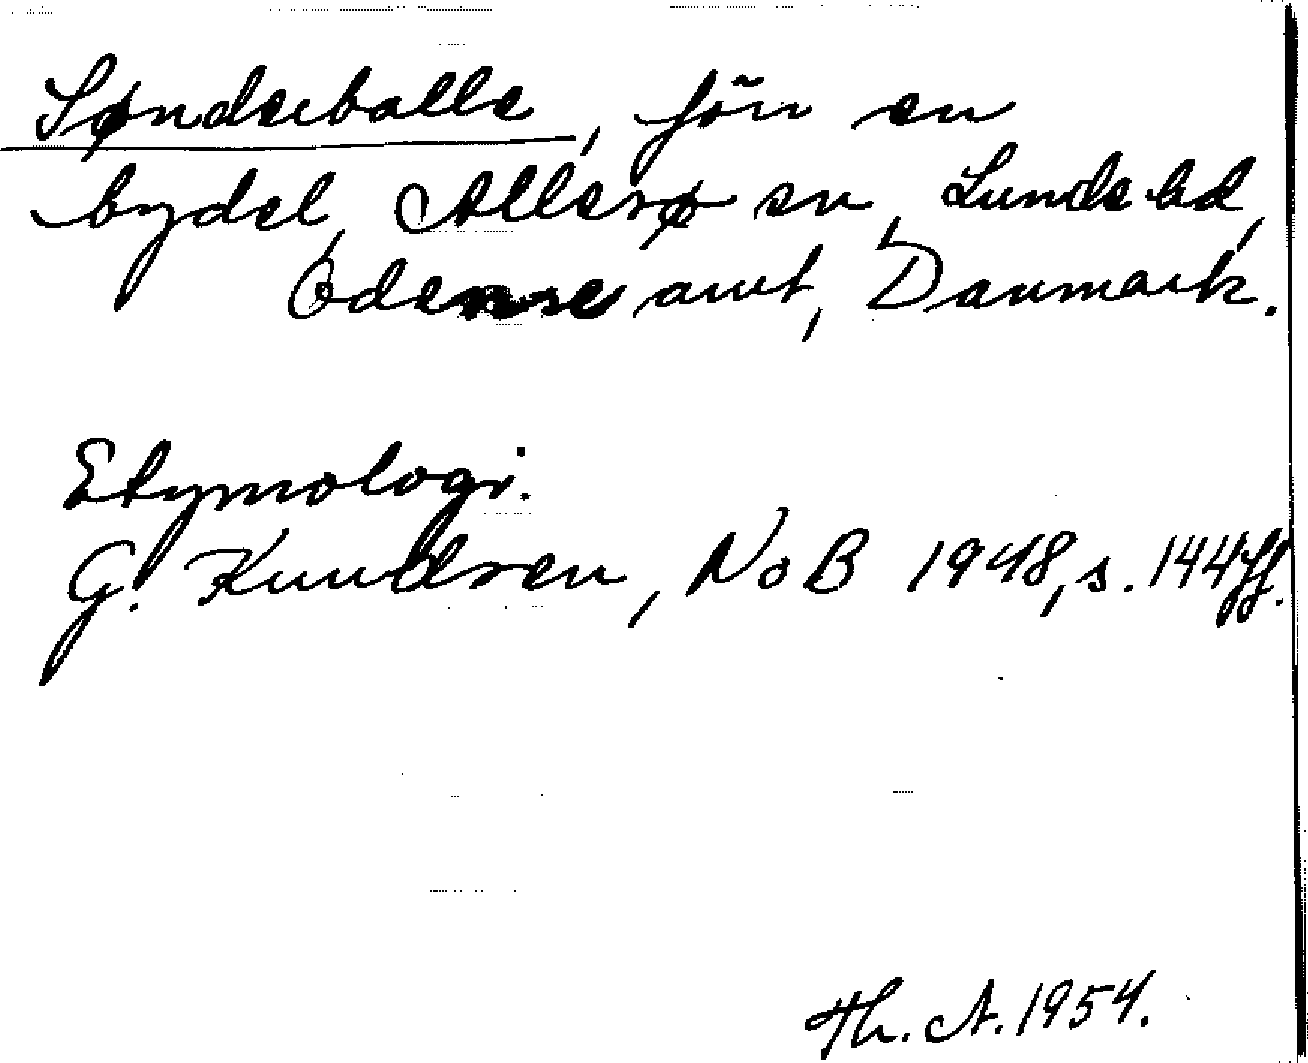 Sønderballe, förr en
bydel, Allerø sn, Lunde hd,
Odense amt, Danmark.
Etymologi.
G. Knudsen, NoB 1948, s. 144ff.
Th. A. 1954.